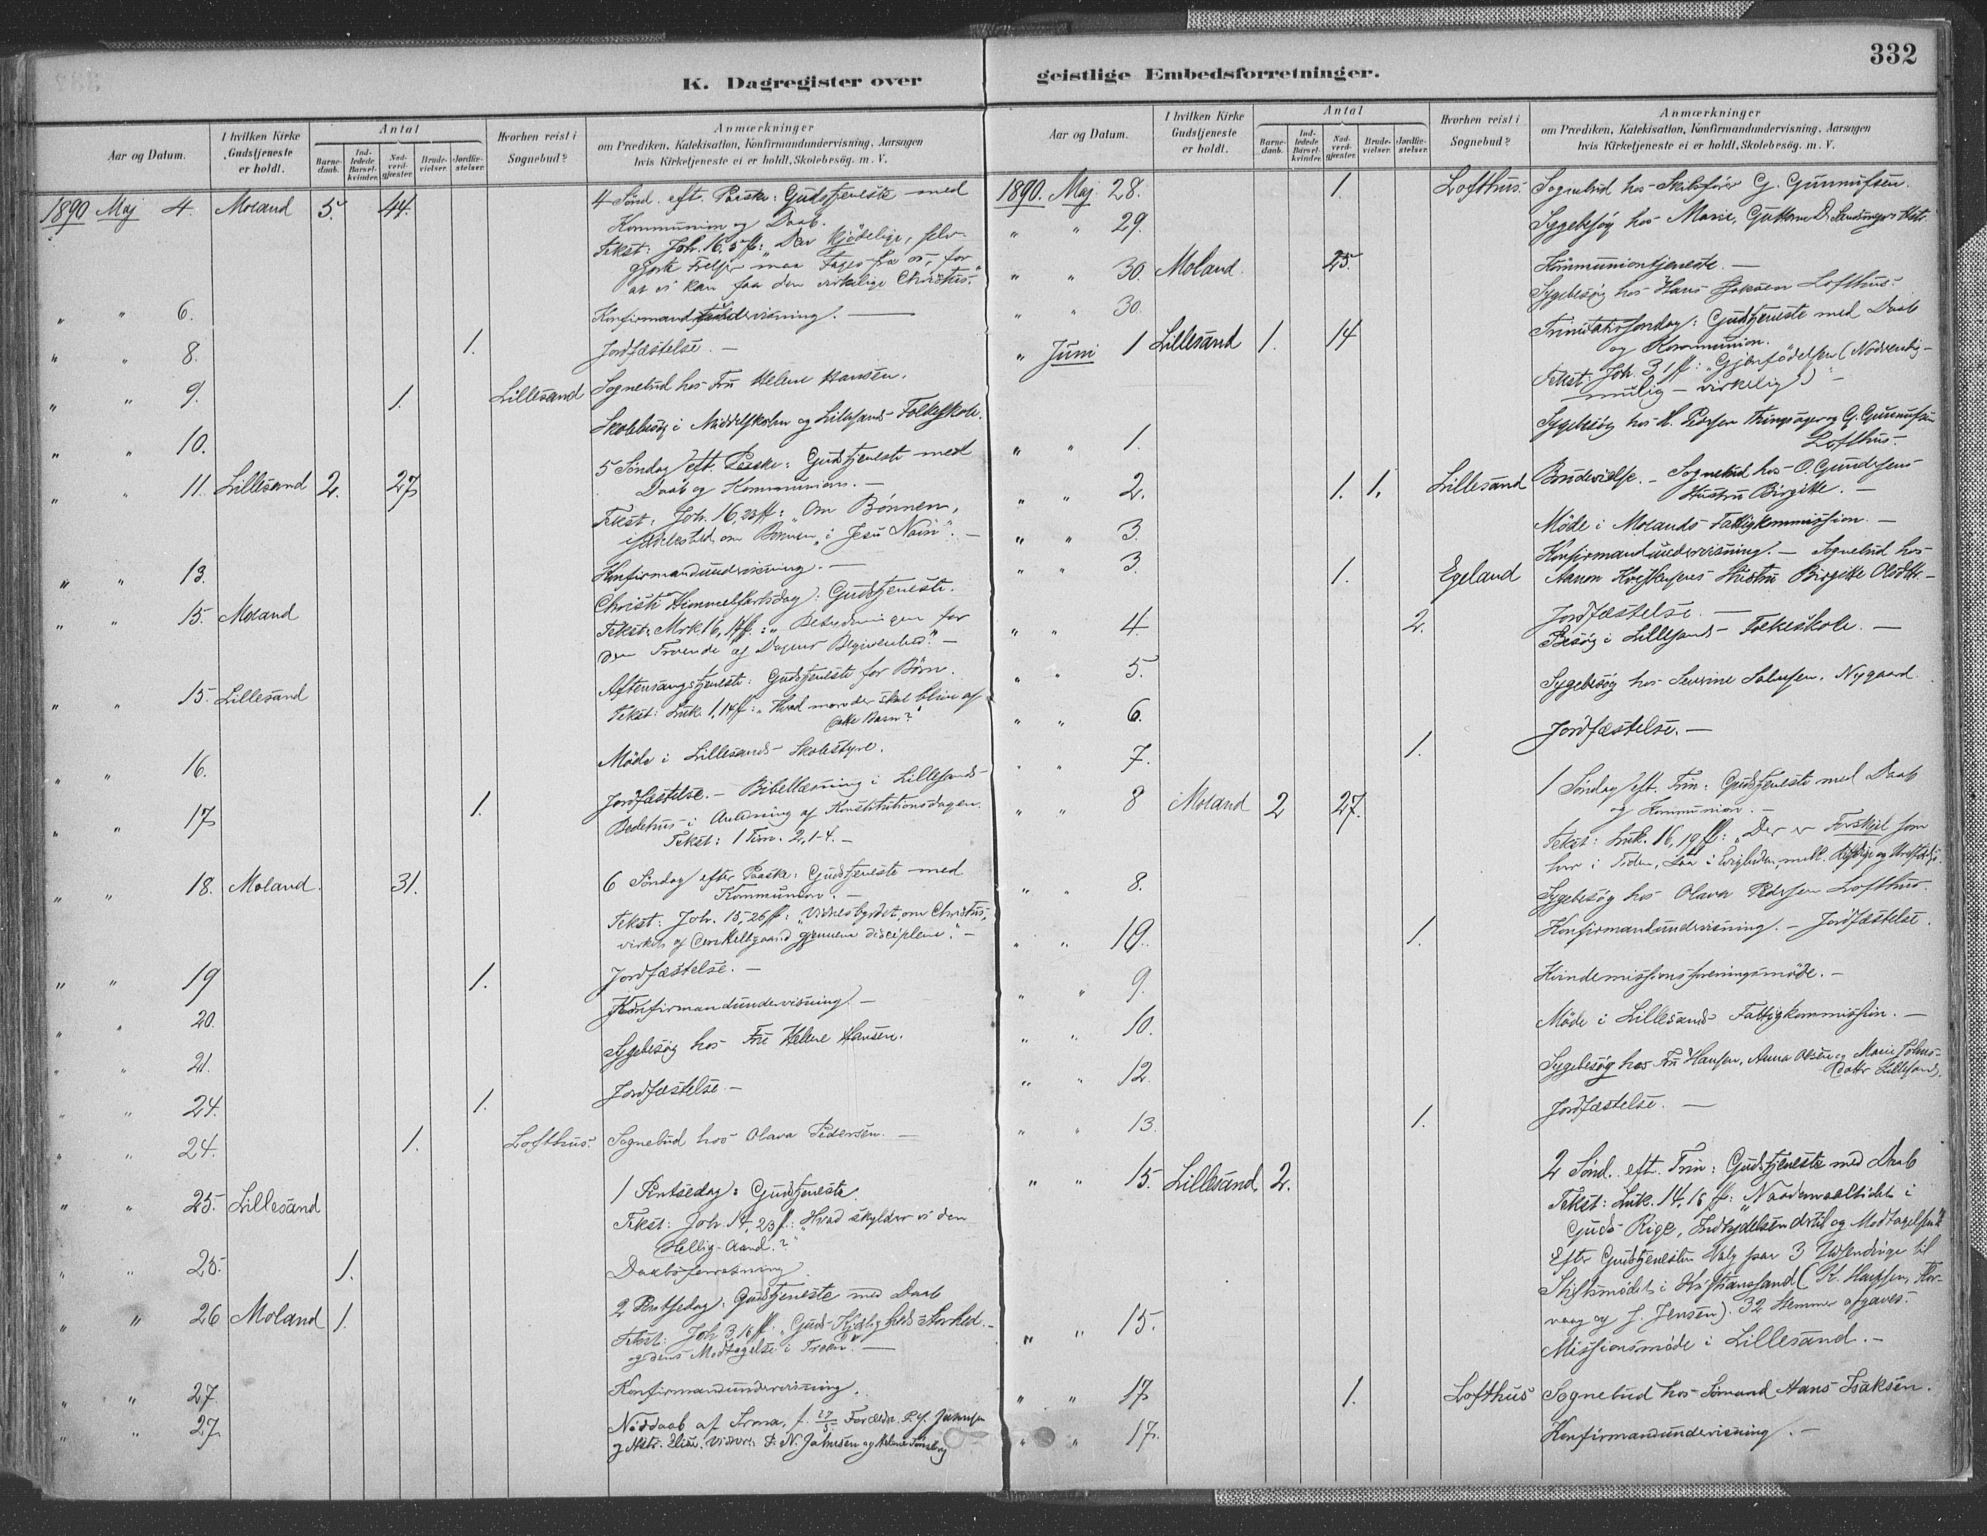 332
K. Dagregister over geistlige Embedsforretninger.
Aar og Datum.
I hvilken Kirke Gudstjeneste er holdt.
Antal
Barnedaab.
Indledede Barselkvinder.
Nadverdgjæster.
Brudevielser.
Jordfæstelser.
Hvorhen reist i Sognebud?
Anmærkninger
om Prædiken, Katekisation, Konfirmandundervisning, Aarsagen
hvis Kirketjeneste ei er holdt, Skolebesøg. m. V.
1890 Maj 4. Moland 5. 44. 4 Sønd. eft. Paaske: Gudstjeneste med
Kommunion og Daab.
Tekst: Joh. 16, 5 ff: Den kjødelige, selv-
gjorte Frelser maa tages fra os, for
at vi kan faa den virkelige Christus."
" " 6. Konfirmandundervisning. —
" " 8. 1. Jordfæstelse. —
" " 9. 1. Lillesand Sognebud hos Fru Helene Hansen.
" " 10. Skolebesøg i Middelskolen og Lillesands Folkeskole.
" " 11. Lillesand 2. 27 5 Søndag eft. Paaske: Gudstjeneste med
Daab og Kommunion. —
Tekst: Joh. 16, 23 ff: "Om Bønnen,
om Bønnen "i Jesu Navn". —
" " 13. Konfirmandundervisning. —
" " 15. Moland Christi Himmelfartsdag: Gudstjeneste.
Tekst: Mrk 16, 14 ff.: "Betydningen for
den Troende af Dagens Begivenhed." —
" " 15. Lillesand Aftensangstjeneste: Gudstjeneste for Børn.
Tekst: Luk. 1, 14 ff: "Hvad mon der skal blive af
dette Barn?
" " 16. Møde i Lillesands Skolestyre.
" " 17 1. Jordfæstelse. — Bibellæsning i Lillesands
Bedehus i Anledning af Konstitutionsdagen.
Tekst: 1 Tim. 2, 1-4. —
" " 18. Moland. 31. 6 Søndag efter Paaske: Gudstjeneste med
Kommunion. —
Tekst: Joh. 15, 26 ff: "Vidnesbyrdet om Christus,
virket af gjennem disciplene." —
" " 19 1. Jordfæstelse. —
" " 20. Konfirmandundervisning. —
" " 21. Sygebesøg hos Fru Helene Hansen.
" " 24. 1. Jordfæstelse. —
" " 24. 1. Lofthus. Sognebud hos Olava Pedersen. —
" " 25. Lillesand 1 Pintsedag: Gudstjeneste.
Tekst: Joh. 14, 23 ff: "Hvad skylder vi den
Hellig-Aand.?"
" " 25. 1. Daabsforretning.
" " 26 Moland 1. 2 Pintsedag: Gudstjeneste med Daab
Tekst: Joh 3, 16 ff: "Guds Kjærligheds Storhed
og dens Modtagelse i Troen". —
" " 27. Konfirmandundervisning.
" " 27. Nøddaab af Irma, f. 27/5 Forældre
1890. Maj 28. 1. Lofthus. Sognebud hos Skibsfører G. Gunnufsen.
" " 29. Sygebesøg hos Marie,
" " 30. Moland. 25. Kommuniontjeneste. —
" " 30. Sygebesøg hos Hans Isaksen Lofthus.
" Juni 1 Lillesand 1. 14 Trinitatissøndag: Gudstjeneste med Daab
og Kommunion.
Tekst: Joh. 3, 1 ff: "Gjenfødelsen (Nødvendig —
mulig — virkelig)"
" " 1. Sygebesøg hos H. Pedersen Thingsager og G. Gunnufsen
Lofthus.
" " 2. 1. 1. Lillesand Brudevielse. — Sognebud hos O. Gundersens
Hustru Birgitte. —
" " 3. Møde i Molands Fattigkommission. —
" " 3. 1. Egeland Konfirmandundervisning. — Sognebud hos
Hustru Birgitte
" " 4. 2. Jordfæstelse. —
Besøg i Lillesands Folkeskole. —
" " 5. Sygebesøg hos Severine Salvesen. Nygaard
" " 6.
" " 7. 1. Jordfæstelse. —
" " 8 Moland 2 27. 1 Søndag eft. Trin: Gudstjeneste med Daab
og Kommunion. —
Tekst: Luk. 16, 19 ff: "Der er Forskjel som
her i Tiden, saa i Evigheden, mell. Retfærdige og
" " 8. Sygebesøg hos Olava Pedersen Lofthus.
" " 10. 1. Konfirmandundervisning. — Jordfæstelse.
" " 9. Kvindemissionsforeningsmøde. —
" " 10. Møde i Lillesands Fattigkommission. —
" " 12. Sygebesøg hos Fru Hansen, Anna Olsen og Marie
Datter Lillesand.
" " 13. 1. Jordfæstelse. —
" " 15. Lillesand 2. 2 Sønd. eft. Trin: Gudstjeneste med Daab
Tekst: Luk. 14, 16 ff: "Naademaaltidet i
Guds Rige, Indbydelsen dertil og Modtagelsen"
Efter Gudstjenesten Valg paa 3 Udsendinge til
Stiftsmødet i Kristianssand (K. Hanssen,
og J. Jensen). 32 Stemmer afgaves.
" " 15. Missionsmøde i Lillesand. —
" " 17 1. Lofthus Sognebud hos Sømand Hans Isaksen.
" " 17. Konfirmandundervisning. —